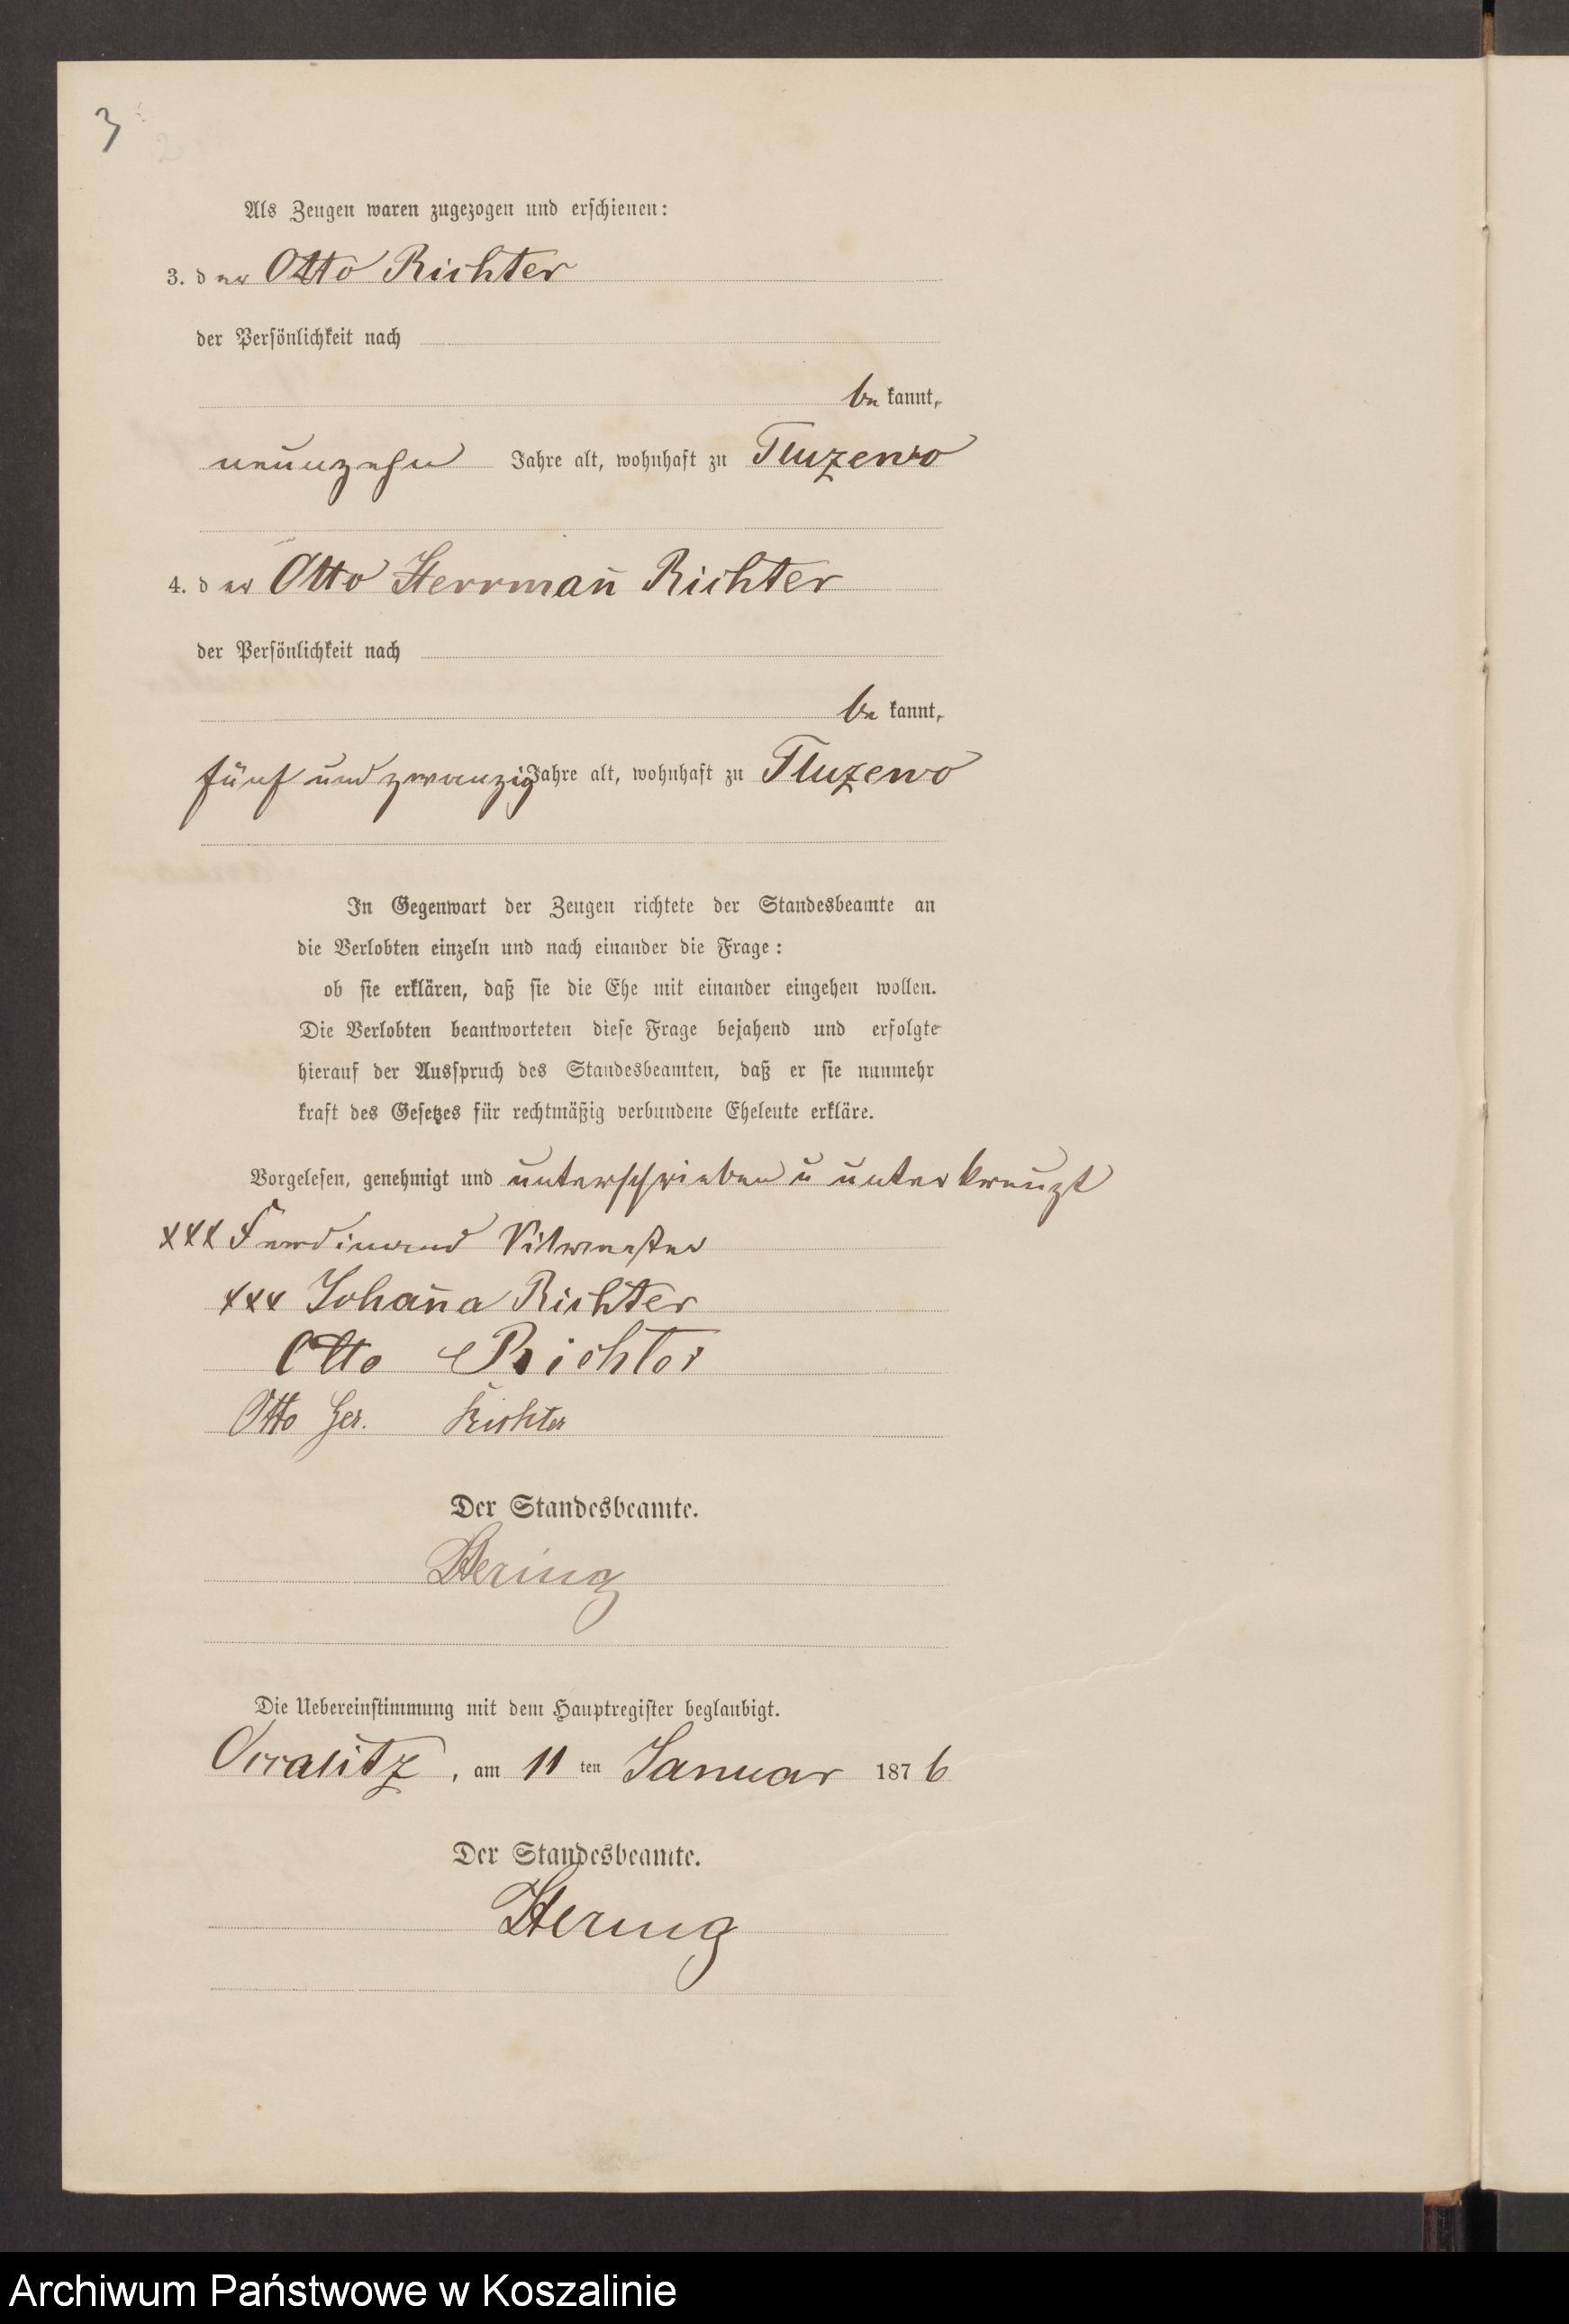 3
Als Zeugen waren zugezogen und erschienen:
3. der Otto Richter
der Persönlichkeit nach
be kannt,
neunzehn Jahre alt, wohnhaft zu Tluzewo
4. der Otto Herrman̄ Richter
der Persönlichkeit nach
be kannt,
fünf und zwanzig Jahre alt, wohnhaft zu Tluzewo
In Gegenwart der Zeugen richtete der Standesbeamte an
die Verlobten einzeln und nach einander die Frage:
ob sie erklären, daß sie die Ehe mit einander eingehen wollen.
Die Verlobten beantworteten diese Frage bejahend und erfolgte
hierauf der Ausspruch des Standesbeamten, daß er sie nunmehr
kraft des Gesetzes für rechtmäßig verbundene Eheleute erkläre.
Vorgelesen, genehmigt und unterschrieben u unterkreuzt
xxx Ferdinand
xxx Johan̄a Richter
Otto Richter
Otto Her. Richter
Der Standesbeamte.
Hering
Die Uebereinstimmung mit dem Hauptregister beglaubigt.
, am 11 ten Januar 1876
Der Standesbeamte.
Hering
Archiwum Państwowe w Koszalinie